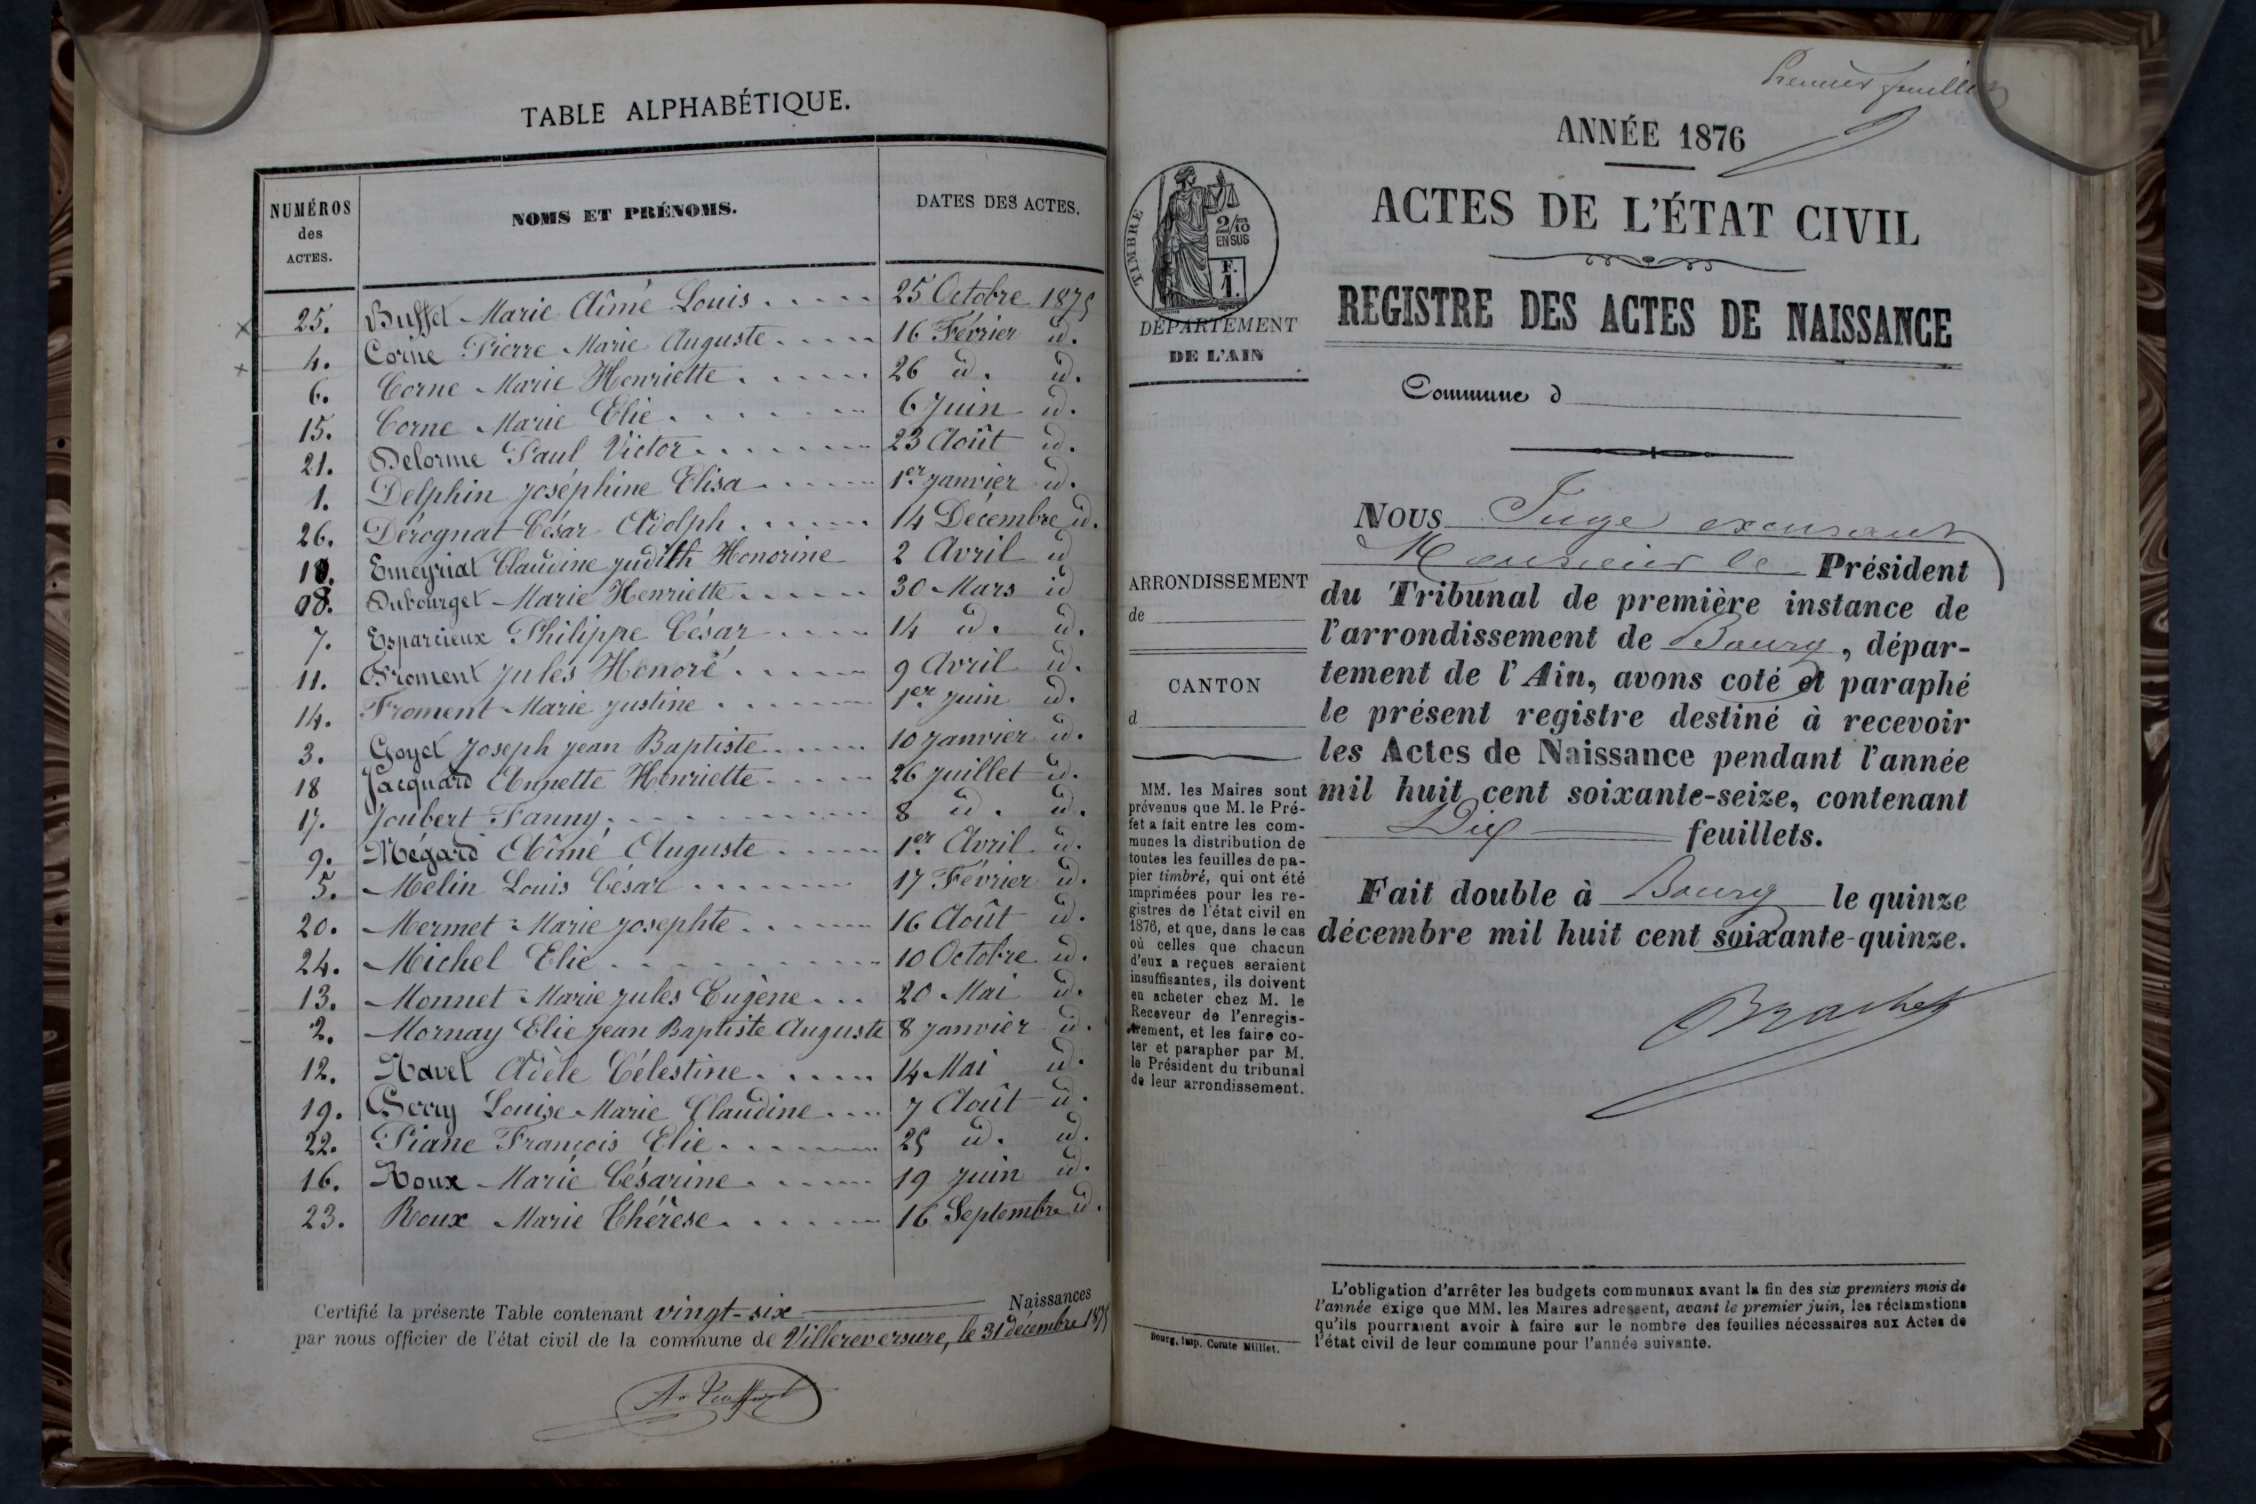 TABLE ALPHABÉTIQUE.
NUMÉROS des ACTES. NOMS ET PRÉNOMS. DATES DES ACTES.
25. Buffet Marie Aimé Louis 25 Octobre 1875
4. Corne Pierre Marie Auguste 16 Février id.
6. Corne Marie Henriette 26 id. id.
15. Corne Marie Elie 6 Juin id.
21. Delorme Paul Victor 23 Août id.
1. Delphin Joséphine Elisa 1er Janvier id.
26. Dérognat César Adolph 14 Décembre id.
10. Emeyriat Claudine Judith Honorine 2 Avril id
08. Dubourget Marie Henriette 30 Mars id
7. Esparcieux Philippe César 14 id. id.
11. Froment Jules Honoré 9 Avril id.
14. Froment Marie Justine 1er Juin id.
3. Goyet Joseph Jean Baptiste 10 Janvier id.
18 Jacquard Annette Henriette 26 Juillet id.
17. Joubert Fanny 8 id. id.
9. Mégard Aimé Auguste 1er Avril id.
5. Melin Louis César 17 Février id.
20. Mermet Marie Josephte 16 Août id.
24. Michel Elie 10 Octobre id.
13. Monnet Marie Jules Eugène 20 Mai id.
2. Mornay Elie Jean Baptiste Auguste 8 Janvier id.
12. Navel Adèle Célestine 14 Mai id.
19. Perry Louise Marie Claudine 7 Août id.
22. Piane François Elie 25 id. id.
16. Roux Marie Césarine 19 Juin id.
23. Roux Marie Thérèse 16 Septembre id.
Certifié la présente Table contenant vingt-six Naissances
par nous officier de l'état civil de la commune de Villereversure, le 31 décembre 1875
Premier feuillet
ANNÉE 1876
ACTES DE L'ÉTAT CIVIL
REGISTRE DES ACTES DE NAISSANCE
TIMBRE
2/10
EN SUS
F.
1.
DÉPARTEMENT
DE L'AIN
Commune d
ARRONDISSEMENT
de
CANTON
d
MM. les Maires sont
prévenus que M. le Pré-
fet a fait entre les com-
munes la distribution de
toutes les feuilles de pa-
pier timbré, qui ont été
imprimées pour les re-
gistres de l'état civil en
1876, et que, dans le cas
où celles que chacun
d'eux a reçues seraient
insuffisantes, ils doivent
en acheter chez M. le
Receveur de l'enregis-
trement, et les faire co-
ter et parapher par M.
le Président du tribunal
de leur arrondissement.
Bourg, imp. Comte Millet.
NOUS Juge excusant
Monsieur le Président
du Tribunal de première instance de
l'arrondissement de Bourg, dépar-
tement de l'Ain, avons coté et paraphé
le présent registre destiné à recevoir
les Actes de Naissance pendant l'année
mil huit cent soixante-seize, contenant
Dix feuillets.
Fait double à Bourg le quinze
décembre mil huit cent soixante-quinze.
L'obligation d'arrêter les budgets communaux avant la fin des six premiers mois de
l'année exige que MM. les Maires adressent, avant le premier juin, les réclamations
qu'ils pourraient avoir à faire sur le nombre des feuilles nécessaires aux Actes de
l'état civil de leur commune pour l'année suivante.